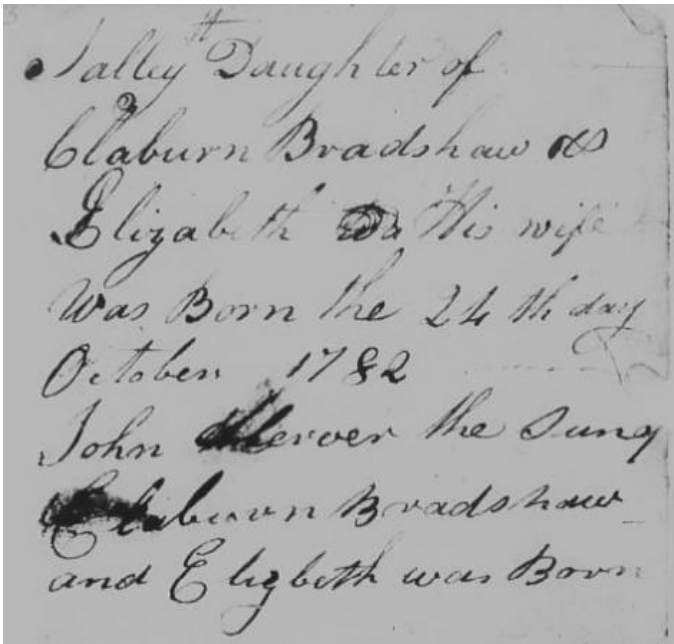 Salley Daughter of
Claburn Bradshaw &
Elizabeth His wife
Was Born the 24 th day
October 1782
John the Sung
Claburn Bradshaw
and Elizbeth was Born